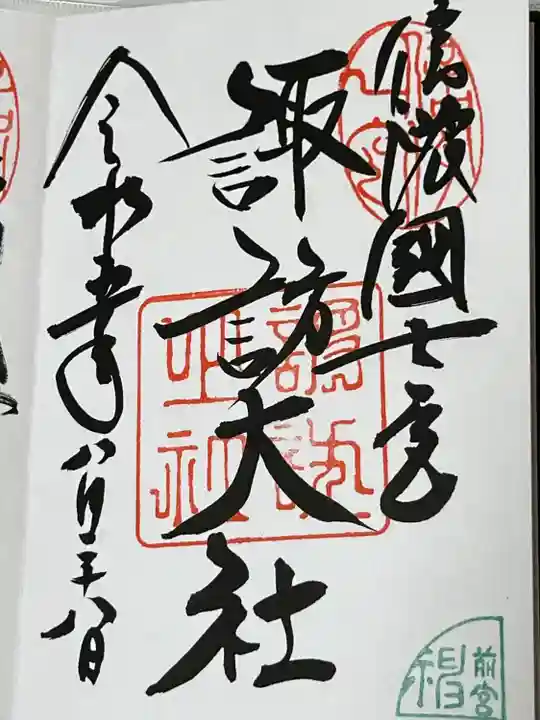 信濃國一宮
諏訪大社
令和五年八月二十八日
前宮